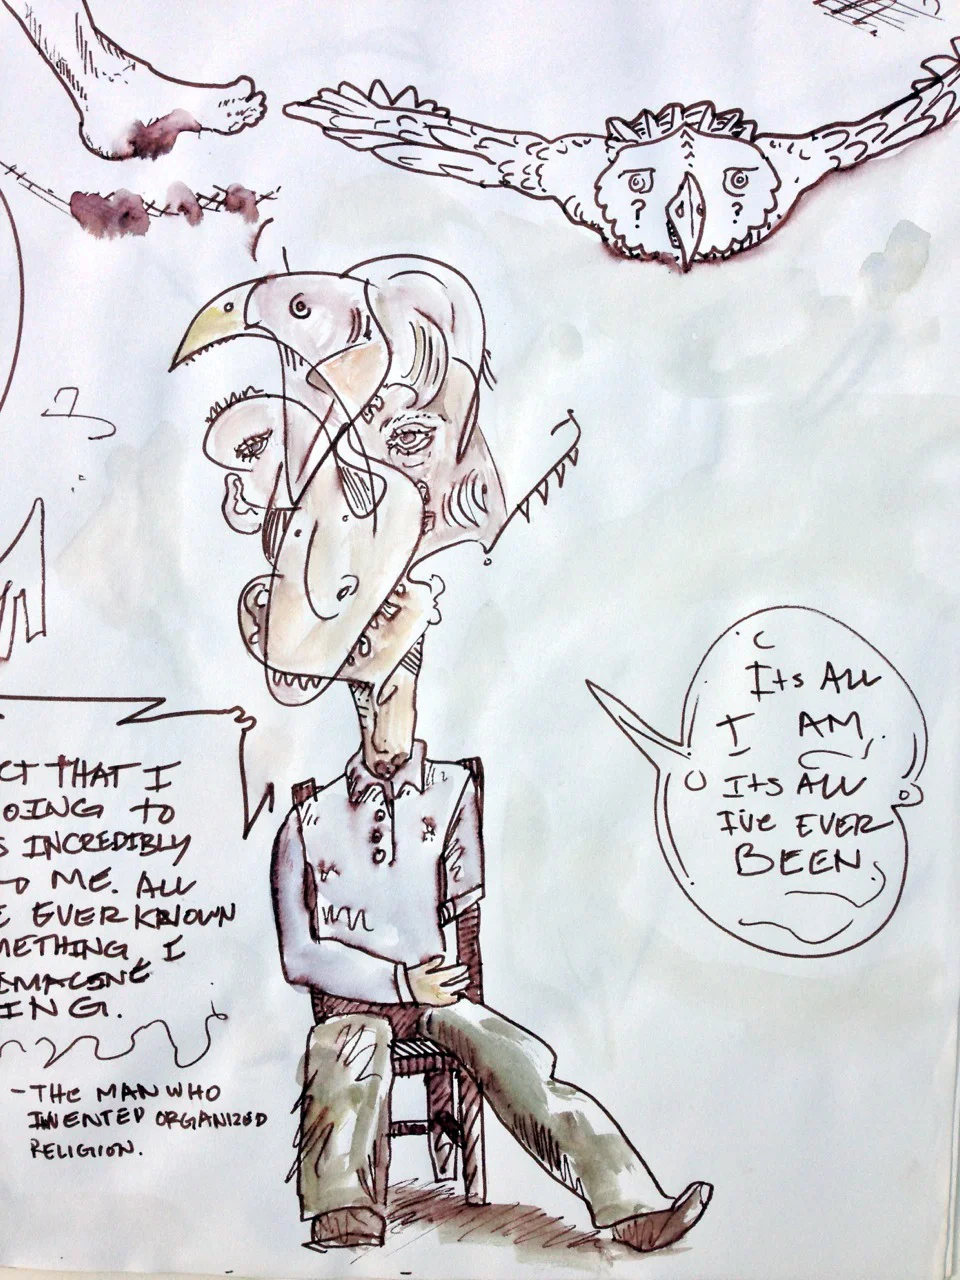 CT THAT I
OING TO
S INCREDIBLY
O ME. ALL
E EVER KNOWN
METHING I
IMAGINE
ING.
-THE MAN WHO
INVENTED ORGANIZED
RELIGION.
ITs ALL
I AM,
ITs ALL
I'VE EVER
BEEN